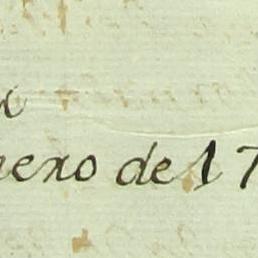 nero de 17